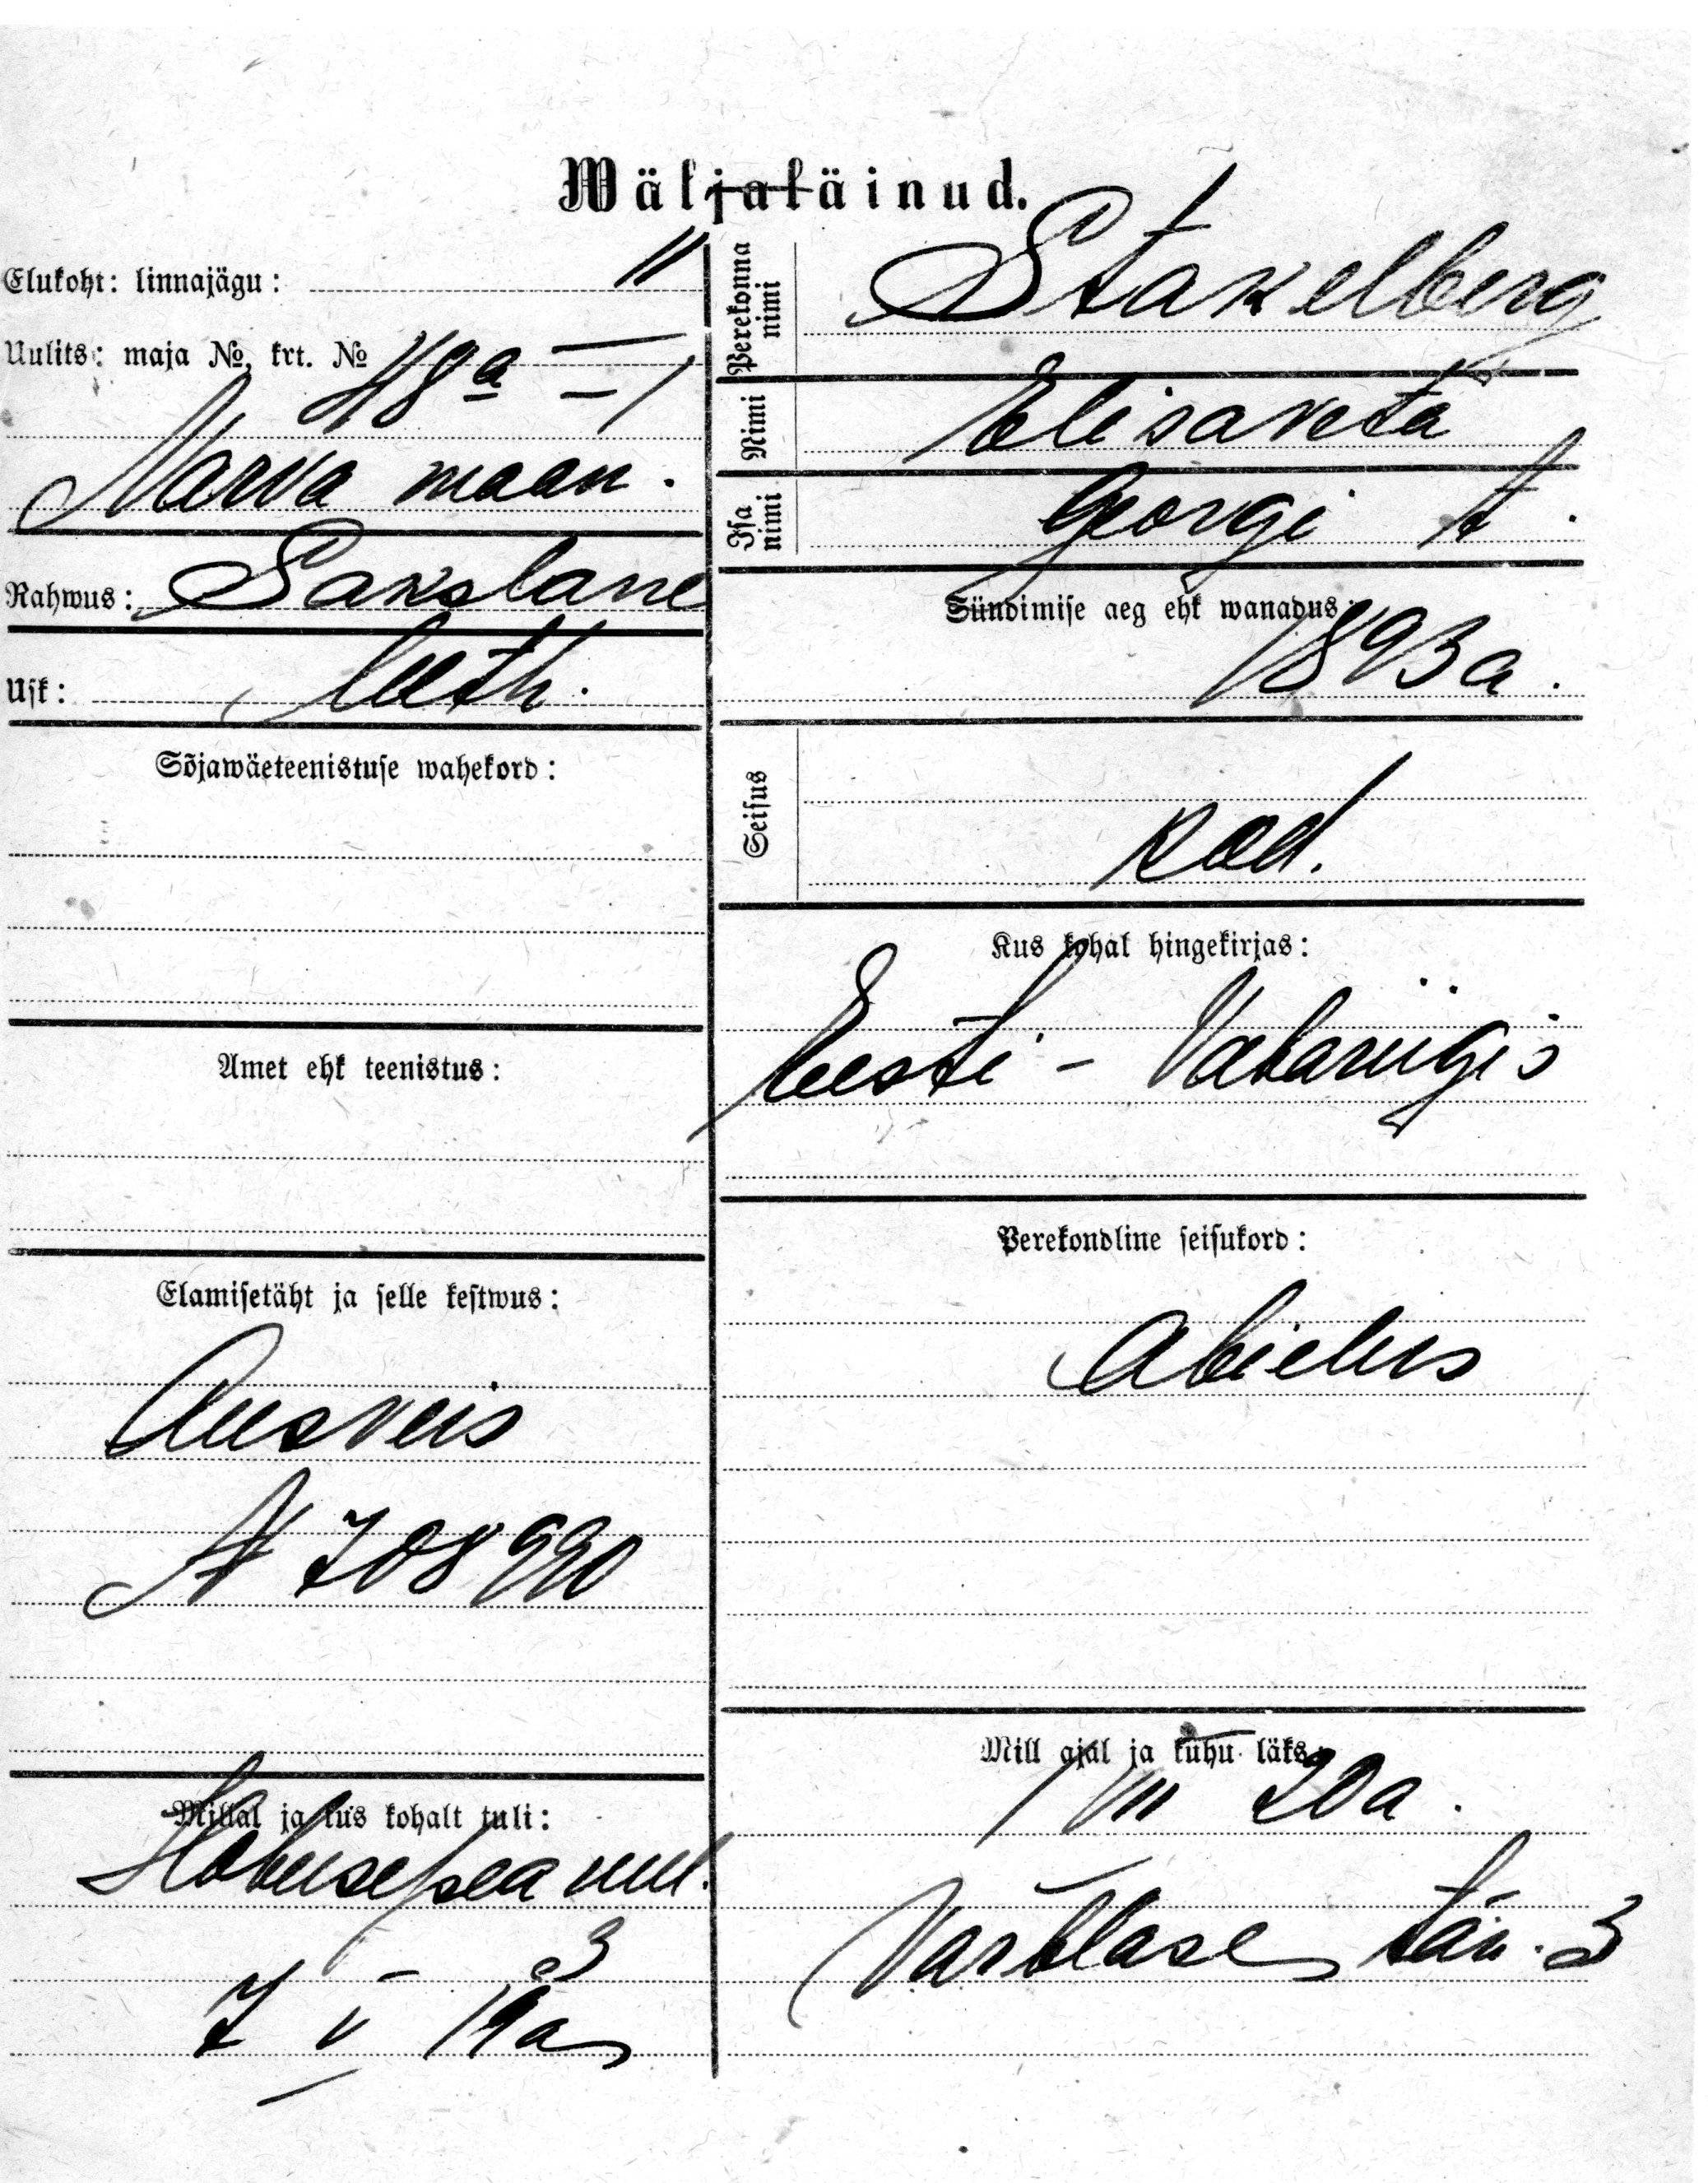 Wäljaläinud.
Elukoht: linnajägu: II
Uulits: maja №, krt. № 48a – 1
Narva maan.
Rahwus: Sakslane
Usk: luth.
Sõjawäeteenistuse wahekord:
Amet ehk teenistus:
Elamisetäht ja selle kestwus:
Ausveis
№ 708990
Millal ja kus kohalt tuli:
Hobusepea uul.
3
7 V 19a
Perekonna nimi Stakelberg
Nimi Elisaveta
Isa nimi Georgi t.
Sündimise aeg ehk wanadus:
1893 a.
Seisus
kod.
Kus kohal hingekirjas:
Eesti - Vabariigis
Perekondline seisukord:
Abielus
Mill ajal ja kuhu läks:
1 VII 20a.
tän. 3